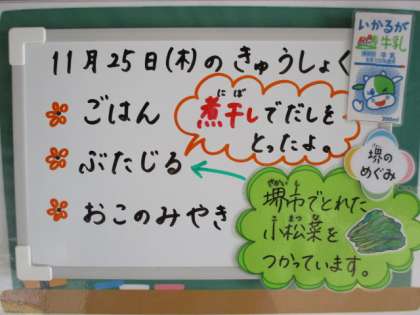 11月25日(木)のきゅうしょく
ごはん
ぶたじる
おこのみやき
にぼ
煮干しでだしを
とったよ。
いかるが
牛乳
200ml
堺の
めぐみ
さかいし
堺市でとれた
こまつな
小松菜を
つかっています。